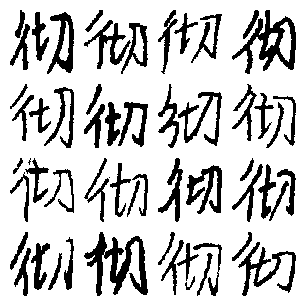 彻彻彻彻
彻彻彻彻
彻彻彻彻
彻彻彻彻